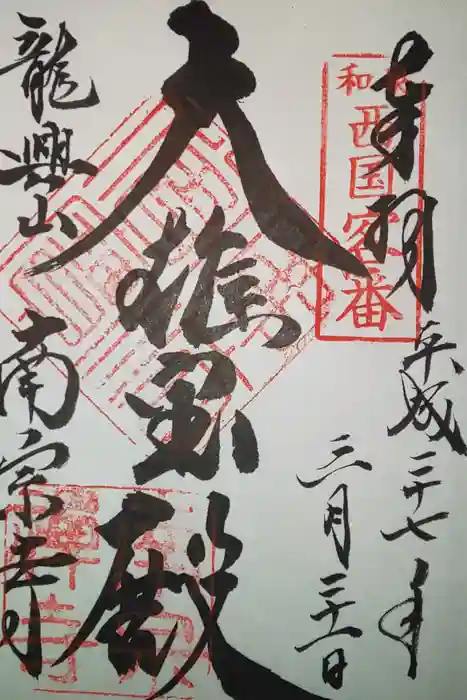 奉拝
和泉
西国客番
平成二十七年
三月二十一日
大雄宝殿
龍興山
南宗寺